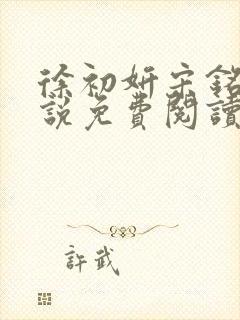 徐初妍宋銘
説免費閱讀
許武